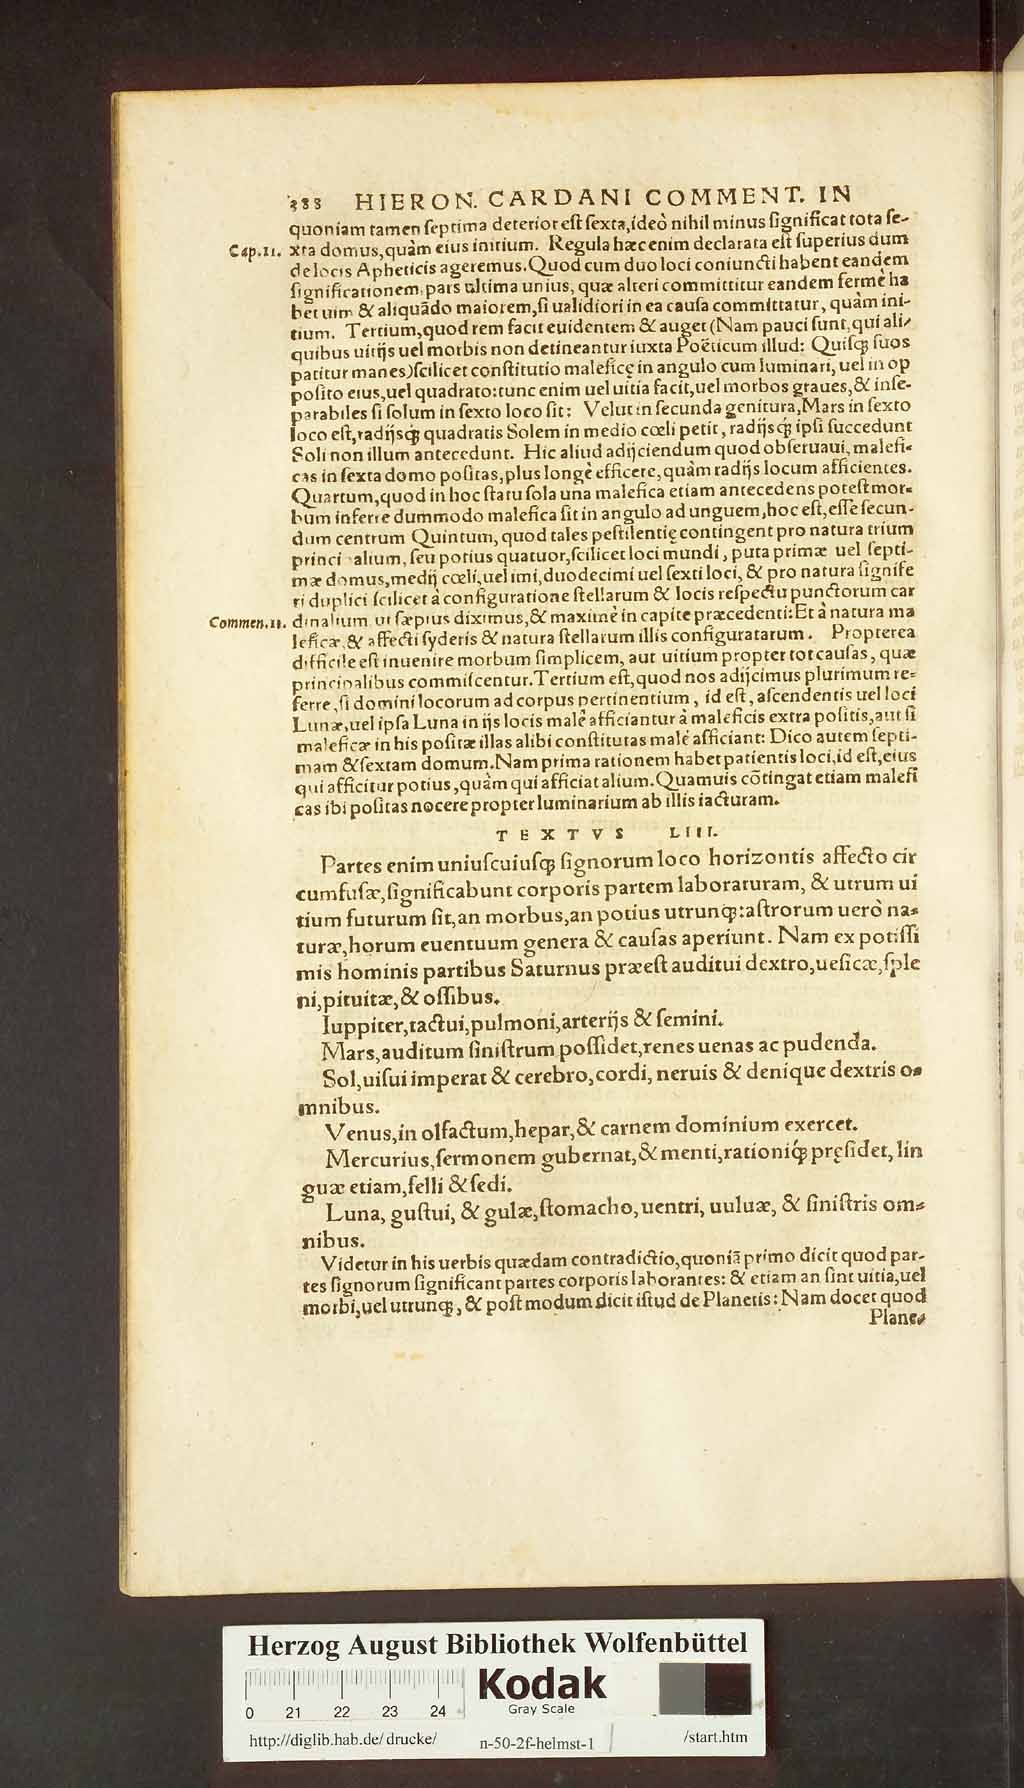 388 HIERON. CARDANI COMMENT. IN
quoniam tamen septima deterior est sexta, ideò nihil minus significat tota se-
Cap.11. xta domus, quàm eius initium. Regula hæc enim declarata est superius dum
de locis Apheticis ageremus. Quod cum duo loci coniuncti habent eandem
significationem, pars ultima unius, quæ alteri committitur eandem fermè ha
bet uim & aliquãdo maiorem, si ualidiori in ea causa committatur, quàm ini-
tium. Tertium, quod rem facit euidentem & auget (Nam pauci sunt, qui ali-
quibus uitijs uel morbis non detineantur iuxta Poëticum illud: Quisq; suos
patitur manes) scilicet constitutio maleficę in angulo cum luminari, uel in op
posito eius, uel quadrato: tunc enim uel uitia facit, uel morbos graues, & inse-
parabiles si solum in sexto loco sit: Velut in secunda genitura, Mars in sexto
loco est, radijsq; quadratis Solem in medio cœli petit, radijsq; ipsi succedunt
Soli non illum antecedunt. Hic aliud adijciendum quod obseruaui, malefi-
cas in sexta domo positas, plus longè efficere, quàm radijs locum afficientes.
Quartum, quod in hoc statu sola una malefica etiam antecedens potest mor-
bum inferre dummodo malefica sit in angulo ad unguem, hoc est, esse secun-
dum centrum Quintum, quod tales pestilentię contingent pro natura trium
princi alium, seu potius quatuor, scilicet loci mundi, puta primæ uel septi-
mæ domus, medij cœli, uel imi, duodecimi uel sexti loci, & pro natura signife
ri duplici scilicet à configuratione stellarum & locis respectu punctorum car
Commen.11. dinalium ut sæpius diximus, & maximè in capite præcedenti: Et à natura ma
leficæ, & affecti syderis & natura stellarum illis configuratarum. Propterea
difficile est inuenire morbum simplicem, aut uitium propter tot causas, quæ
principalibus commiscentur. Tertium est, quod nos adijcimus plurimum re-
ferre, si domini locorum ad corpus pertinentium, id est, ascendentis uel loci
Lunæ, uel ipsa Luna in ijs locis malè afficiantur à maleficis extra positis, aut si
maleficæ in his positæ illas alibi constitutas malè afficiant: Dico autem septi-
mam & sextam domum. Nam prima rationem habet patientis loci, id est, eius
qui afficitur potius, quàm qui afficiat alium. Quamuis cõtingat etiam malefi
cas ibi positas nocere propter luminarium ab illis iacturam.
TEXTVS LIII.
Partes enim uniuscuiusq; signorum loco horizontis affecto cir
cumfusæ, significabunt corporis partem laboraturam, & utrum ui
tium futurum sit, an morbus, an potius utrunq;: astrorum uerò na-
turæ, horum euentuum genera & causas aperiunt. Nam ex potissi
mis hominis partibus Saturnus præest auditui dextro, uesicæ, sple
ni, pituitæ, & ossibus.
Iuppiter, tactui, pulmoni, arterijs & semini.
Mars, auditum sinistrum possidet, renes uenas ac pudenda.
Sol, uisui imperat & cerebro, cordi, neruis & denique dextris o-
mnibus.
Venus, in olfactum, hepar, & carnem dominium exercet.
Mercurius, sermonem gubernat, & menti, rationiq́; pręsidet, lin
guæ etiam, felli & sedi.
Luna, gustui, & gulæ, stomacho, uentri, uuluæ, & sinistris om-
nibus.
Videtur in his uerbis quædam contradictio, quoniã primo dicit quod par-
tes signorum significant partes corporis laborantes: & etiam an sint uitia, uel
morbi, uel utrunq;, & postmodum dicit istud de Planetis: Nam docet quod
Plane-
Herzog August Bibliothek Wolfenbüttel
0 21 22 23 24
Kodak
Gray Scale
http://diglib.hab.de/drucke/ n-50-2f-helmst-1 /start.htm